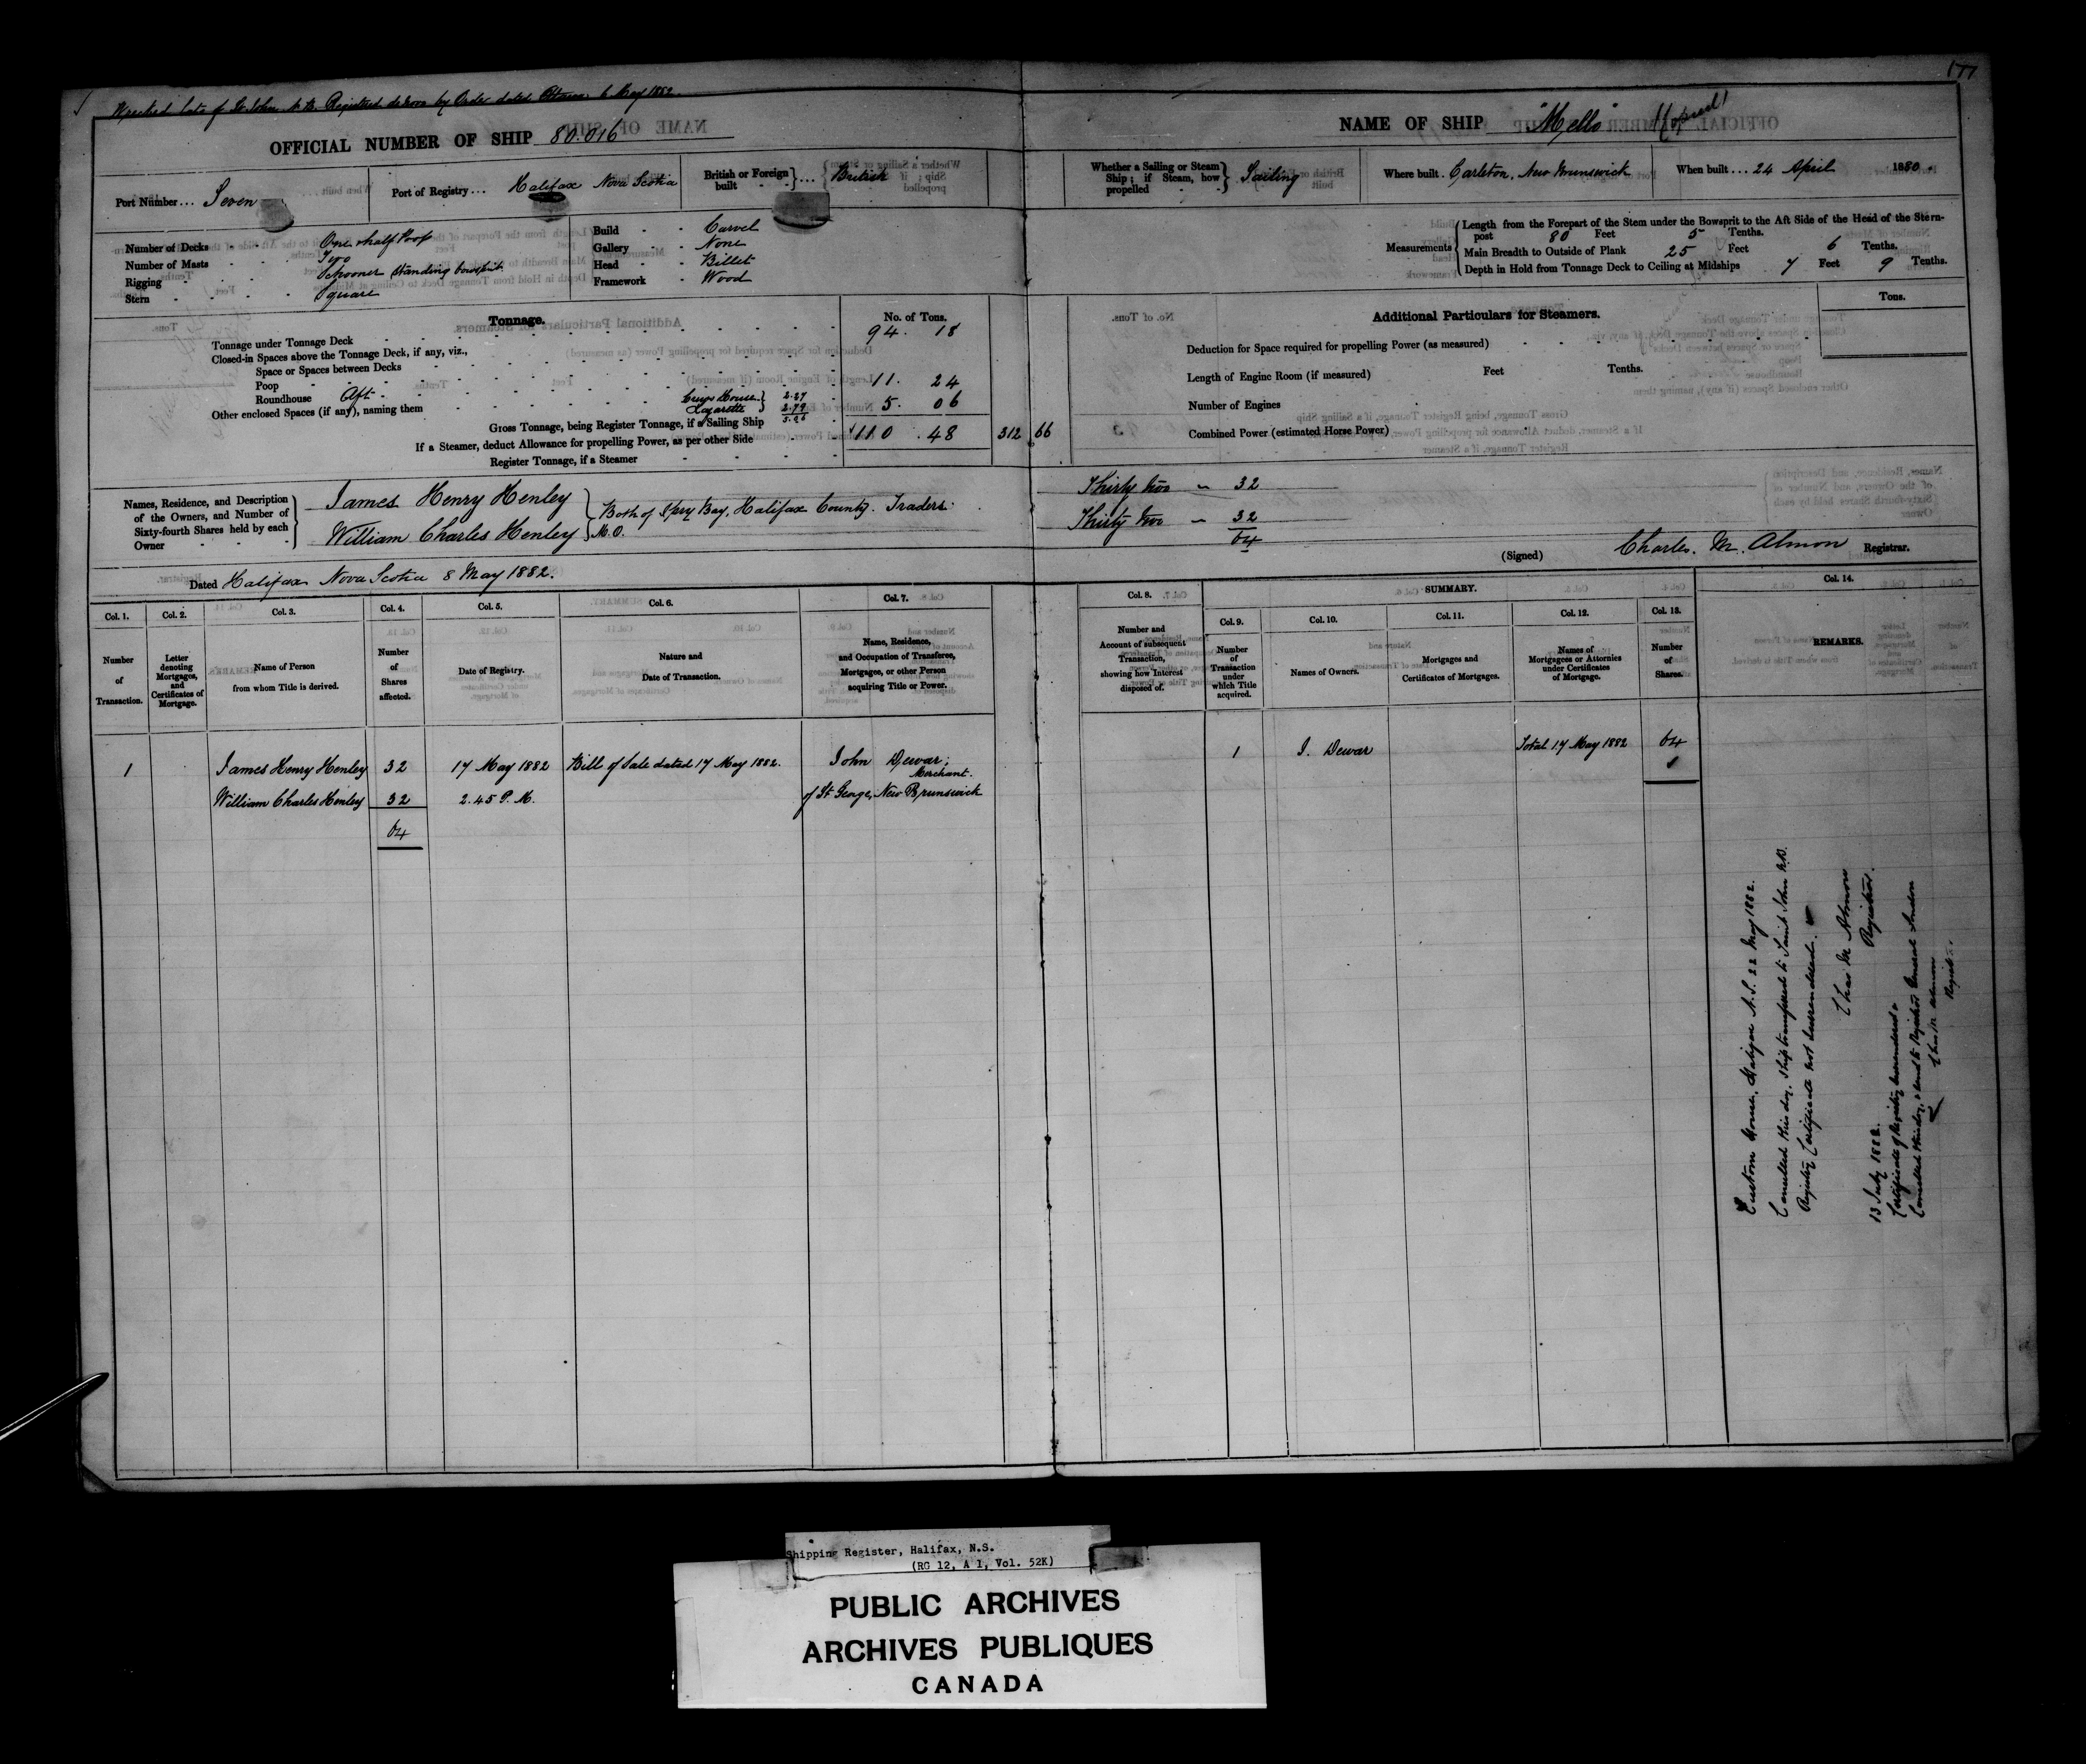 177
Wrecked late of St. John N.B. Registered de novo by Order dated Ottawa 6 May 1882
OFFICIAL NUMBER OF SHIP 80.016
NAME OF SHIP "Mello"
Port Number... Seven
Port of Registry... Halifax Nova Scotia
British or Foreign built } ... British
Whether a Sailing or Steam Ship; if Steam, how propelled } Sailing
Where built. Carleton, New Brunswick
When built... 24 April 1880.
Number of Decks One & half Poop
Number of Masts Two
Rigging Schooner Standing bowsprit
Stern Square
Build Carvel
Gallery None
Head Billet
Framework Wood
Measurements
Length from the Forepart of the Stem under the Bowsprit to the Aft Side of the Head of the Stern-
post 80 Feet 5 Tenths.
Main Breadth to Outside of Plank 25 Feet 6 Tenths.
Depth in Hold from Tonnage Deck to Ceiling at Midships 7 Feet 9 Tenths.
Tonnage. No. of Tons.
Tonnage under Tonnage Deck 94. 18
Closed-in Spaces above the Tonnage Deck, if any, viz.,
Space or Spaces between Decks
Poop 11. 24
Roundhouse Aft
Other enclosed Spaces (if any), naming them House } 2.27
Lazarette } 2.79 5. 06
Gross Tonnage, being Register Tonnage, if a Sailing Ship 110. 48 312 66
If a Steamer, deduct Allowance for propelling Power, as per other Side
Register Tonnage, if a Steamer
Additional Particulars for Steamers. Tons.
Deduction for Space required for propelling Power (as measured)
Length of Engine Room (if measured) Feet Tenths.
Number of Engines
Combined Power (estimated Horse Power)
Names, Residence, and Description
of the Owners, and Number of
Sixty-fourth Shares held by each
Owner
James Henry Henley Thirty two 32
Both of Spry Bay, Halifax County. Traders.
William Charles Henley M.O. Thirty two 32
64
(Signed) Charles. M. Almon Registrar.
Dated Halifax Nova Scotia 8 May 1882.
SUMMARY.
Col. 1. Col. 2. Col. 3. Col. 4. Col. 5. Col. 6. Col. 7. Col. 8. Col. 9. Col. 10. Col. 11. Col. 12. Col. 13. Col. 14.
Number of Transaction.
Letter denoting Mortgages, and Certificates of Mortgage.
Name of Person from whom Title is derived.
Number of Shares affected.
Date of Registry.
Nature and Date of Transaction.
Name, Residence, and Occupation of Transferee, Mortgagee, or other Person acquiring Title or Power.
Number and Account of subsequent Transaction, showing how Interest disposed of.
Number of Transaction under which Title acquired.
Names of Owners.
Mortgages and Certificates of Mortgages.
Names of Mortgagees or Attornies under Certificates of Mortgage.
Number of Shares.
REMARKS.
1 James Henry Henley 32 17 May 1882 Bill of Sale dated 17 May 1882. John Dewar, Merchant.
William Charles Henley 32 2.45 P.M. of St George, New Brunswick
64
1 J. Dewar Total 17 May 1882 64
Custom House, Halifax N.S. 22 May 1882.
Cancelled this day. Ship transferred to Saint John N.B.
Registry Certificate not surrendered.
Chas M Almon
Registrar.
13 July 1882.
Certificate of Registry surrendered &
Cancelled this day, & sent to Registrar General London
Chas M Almon
Registr.
Shipping Register, Halifax, N.S.
(RG 12, A 1, Vol. 52K)
PUBLIC ARCHIVES
ARCHIVES PUBLIQUES
CANADA